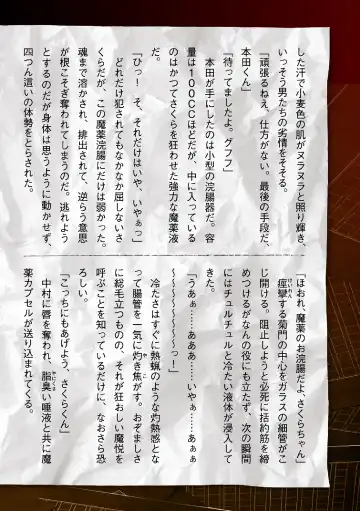 した汗で小麦色の肌がヌラヌラと照り輝き、
いっそう男たちの劣情をそそる。
「頑張るねえ、仕方がない。最後の手段だ、
本田くん」
「待ってましたよ。グフフ」
本田が手にしたのは小型の浣腸器だ。容
量は100CCほどだが、中に入っている
のはかつてさくらを狂わせた強力な魔薬液
だ。
「ひっ! そ、それだけはいや、いやぁっ」
どれだけ犯されてもなかなか屈しないさ
くらだが、この魔薬浣腸にだけは弱かった。
魂まで溶かされ、排出されて、逆らう意思
が根こそぎ奪われてしまうのだ。逃れよう
とするのだが身体は思うように動かせず、
四つん這いの体勢をとらされた。
「ほおれ、魔薬のお浣腸だよ、さくらちゃん」
痙攣する菊門の中心をガラスの細管がこ
じ開ける。阻止しようと必死に括約筋を締
めつけるがなんの役にも立たず、次の瞬間
にはチュルチュルと冷たい液体が浸入して
きた。
「うあぁ……あああ……いやぁ……あぁぁ
～～～～～～～～っ!」
冷たさはすぐに熱蝋のような灼熱感とな
って腸管を一気に灼き焦がす。おぞましさ
に総毛立つものの、それが狂おしい魔悦を
呼ぶことを知っているだけに、なおさら恐
ろしい。
「こっちにもあげよう、さくらくん」
中村に唇を奪われ、脂臭い唾液と共に魔
薬カプセルが送り込まれてくる。